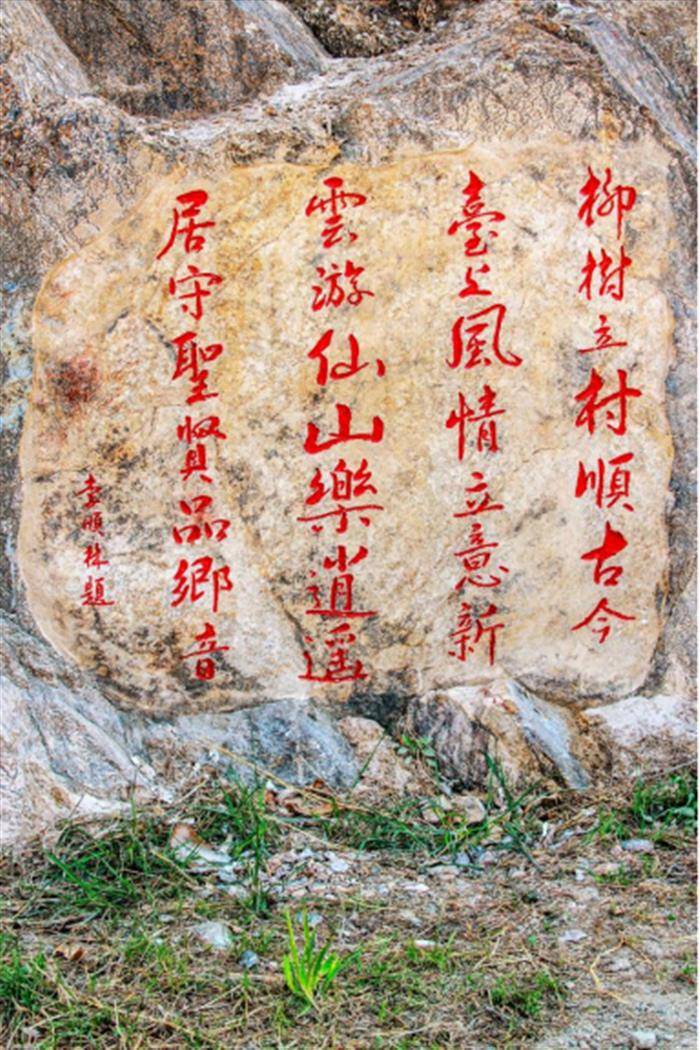 柳樹立村順古今
臺上風情立意新
雲游仙山樂逍遥
居守聖賢品鄉音
順林題